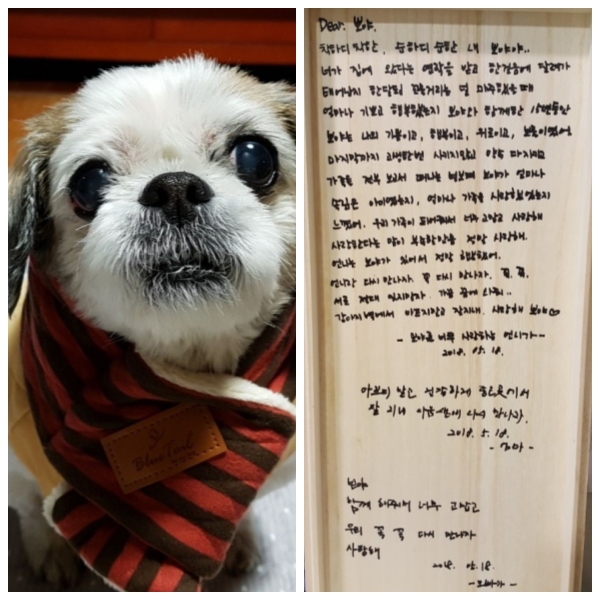 Dear. 보야.
착하디 착한, 순하디 순한 내 보야야..
너가 집에 왔다는 연락을 받고 한걸음에 달려가
태어난지 한달된 꼬물거리는 널 마주했을때
얼마나 기쁘고 행복했는지 보야와 함께한 15년동안
보야는 나의 기쁨이고, 행복이고, 위로이고, 보물이었어
마지막까지 고생한번 시키지않고 약속 다지키고
가족들 전부 보고서 떠나는 널보며 보야가 얼마나
속깊은 아이였는지, 얼마나 가족을 사랑하였는지
느꼈어. 우리 가족이 되어줘서 너무 고맙고 사랑해
사랑한다는 말이 부족할만큼 정말 사랑해.
언니는 보야가 있어서 정말 행복했어.
언니랑 다시 만나자. 꼭 다시 만나자. 꼭. 꼭.
서로 절대 잊지말자. 가끔 꿈에 나와줘..
강아지별에서 아프지말고 잘지내. 사랑해 보야♡
- 보야를 너무 사랑하는 언니가 -
2018. 05. 18.
아프지 말고 건강하게 하늘에서
잘 지내 다음생에 다시 만나자.
2018. 5. 18.
- 엄마 -
보야
함께 해줘서 너무 고맙고
우리 꼭 꼭 다시 만나자
사랑해
2018. 05. 18.
- 오빠가 -